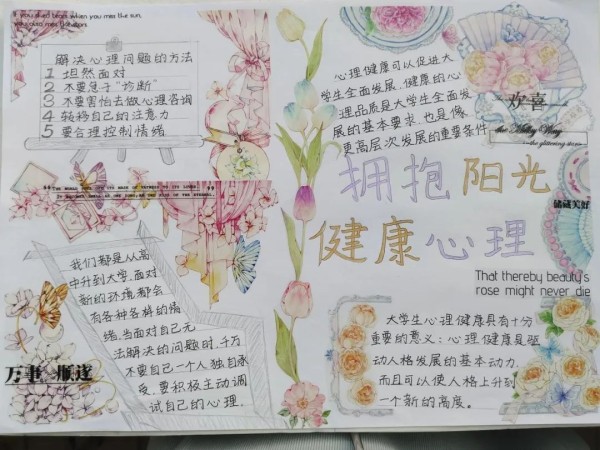 If you shed tears when you miss the sun,
you also miss the stars
解决心理问题的方法
1 坦然面对
2 不要急于“诊断”
3 不要害怕去做心理咨询
4 转移自己的注意力
5 要合理控制情绪
我们都是从高
中升到大学,面对
新的环境都会
有各种各样的情
绪,当面对自己无
法解决的问题时,千万
不要自己一个人独自承
受,要积极主动调
试自己的心理.
万事 顺遂
心理健康可以促进大
学生全面发展,健康的心
理品质是大学生全面发
展的基本要求,也是像
更高层次发展的重要条件
欢喜
the Milky Way
the glittering stars
拥抱阳光
健康心理
储藏美好
That thereby beauty's
rose might never die
大学生心理健康具有十分
重要的意义:心理健康是驱
动人格发展的基本动力,
而且可以使人格上升到
一个新的高度。